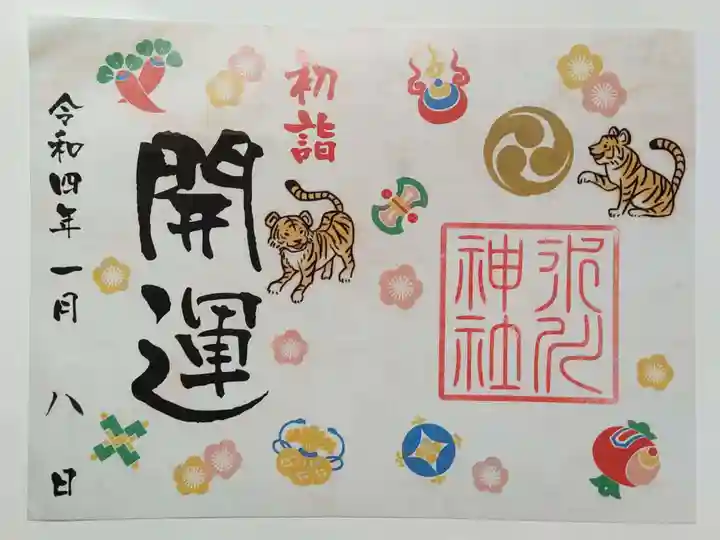 氷川
神社
初詣
開運
令和四年一月八日